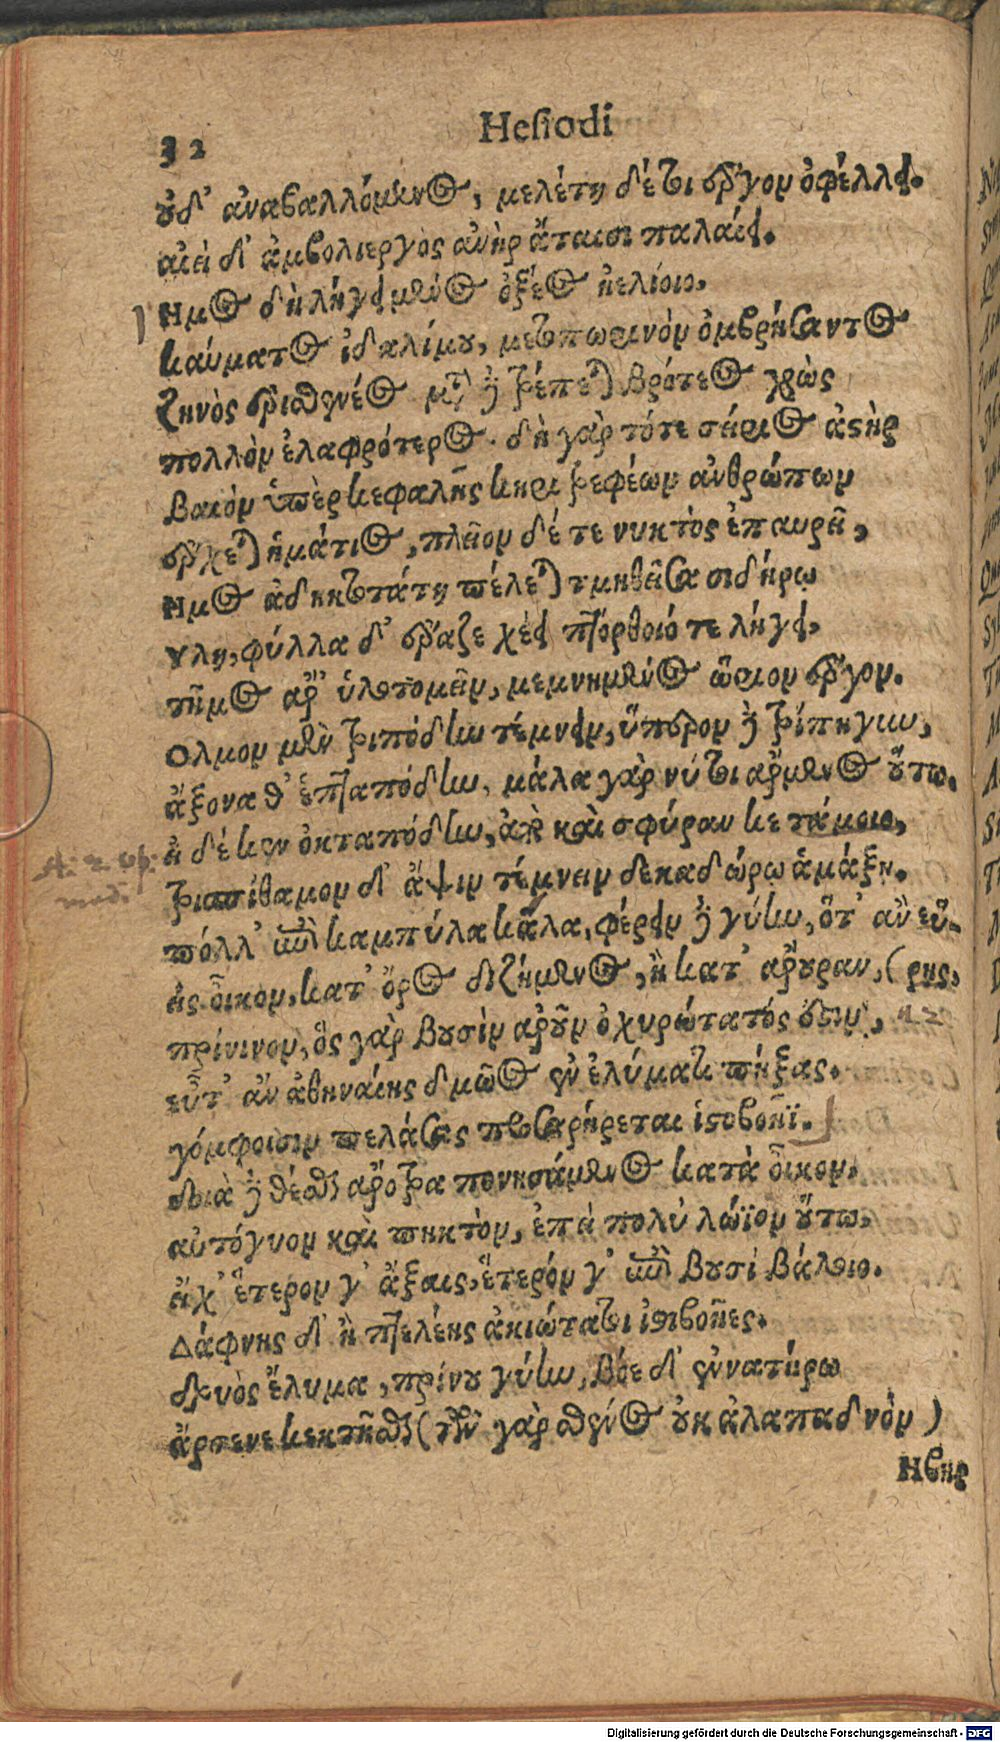 32
Hesiodi
οὐδ' ἀναβαλλόμενος, μελέτη δέ τοι ἔργον ὀφέλλει.
αἰεὶ δ' ἀμβολιεργὸς ἀνὴρ ἄταισι παλαίει.
Ημος δὴ λήγει μένος ὀξέος ἠελίοιο,
καύματος ἰδαλίμου, μετοπωρινὸν ὀμβρήσαντος
ζηνὸς ἐρισθενέος μετὰ δὲ τρέπεται βρότεος χρὼς
πολλὸν ἐλαφρότερος. δὴ γὰρ τότε σείριος ἀστὴρ
βαιὸν ὑπὲρ κεφαλῆς κηριτρεφέων ἀνθρώπων
ἔρχεται ἠμάτιος, πλεῖον δέ τε νυκτὸς ἐπαυρεῖ,
Ημος ἀδηκτοτάτη πέλεται τμηθεῖσα σιδήρῳ
Υλη, φύλλα δ' ἔραζε χέει πτόρθοιό τε λήγει,
τῆμος ἄρ' ὑλοτομεῖν, μεμνημένος ὥριον ἔργον.
Ολμον μὲν τριπόδην τέμνειν, ὕπερον δὲ τρίπηχυν,
ἄξονα θ' ἑπταπόδην, μάλα γάρ νύ τοι ἄρμενος οὕτω.
εἰ δέ κεν ὀκταπόδην, ἀπὸ καὶ σφύραν κε τάμοιο,
τρισπίθαμον δ' ἄψιν τέμνειν δεκαδώρῳ ἁμάξῃ.
πόλλ' ἐπὶ καμπύλα κᾶλα, φέρειν δὲ γύην, ὅτ' ἂν εὕ-
εἰς οἶκον, κατ' ὄρος διζήμενος, ἢ κατ' ἄρουραν, (ρῃς,
πρίνινον, ὃς γὰρ βουσὶν ἀροῦν ὀχυρώτατός ἐστιν,
εὖτ' ἂν ἀθηναίης δμῶος ἐν ἐλύματι πήξας.
γόμφοισιν πελάσας προσαρήρεται ἱστοβοῆϊ.
δοιὰ δὲ θέσθαι ἄροτρα πονησάμενος κατὰ οἶκον.
αὐτόγυον καὶ πηκτὸν, ἐπεὶ πολὺ λώϊον οὕτω,
εἴ χ' ἕτερον γ' ἄξαις, ἕτερόν γ' ἐπὶ βουσὶ βάλοιο.
Δάφνης δ' ἢ πτελέης ἀκιώτατοι ἱστοβοῆες.
δρυὸς ἔλυμα, πρίνου γύην, βόε δ' ἐνναετήρω
ἄρσενε κεκτῆσθαι (τῶν γὰρ σθένος οὐκ ἀλαπαδνὸν)
Ηβης
Digitalisierung gefördert durch die Deutsche Forschungsgemeinschaft - DFG